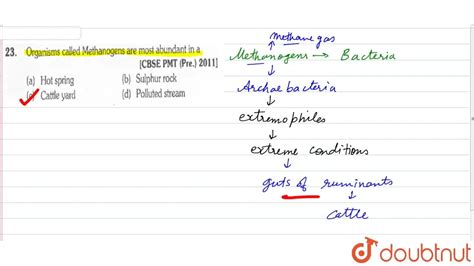 23. Organisms called Methanogens are most abundant in a
[CBSE PMT (Pre.) 2011]
(a) Hot spring (b) Sulphur rock
(c) Cattle yard (d) Polluted stream
methane gas
Methanogens → Bacteria
Archaebacteria
extremophiles
extreme conditions
guts of ruminants
cattle
doubtnut